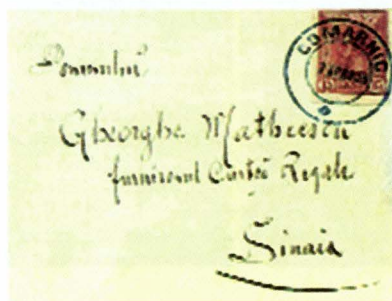 COMARNIC
Domnului
Gheorghe Matheescu
furnisorul Curței Regale
Sinaia